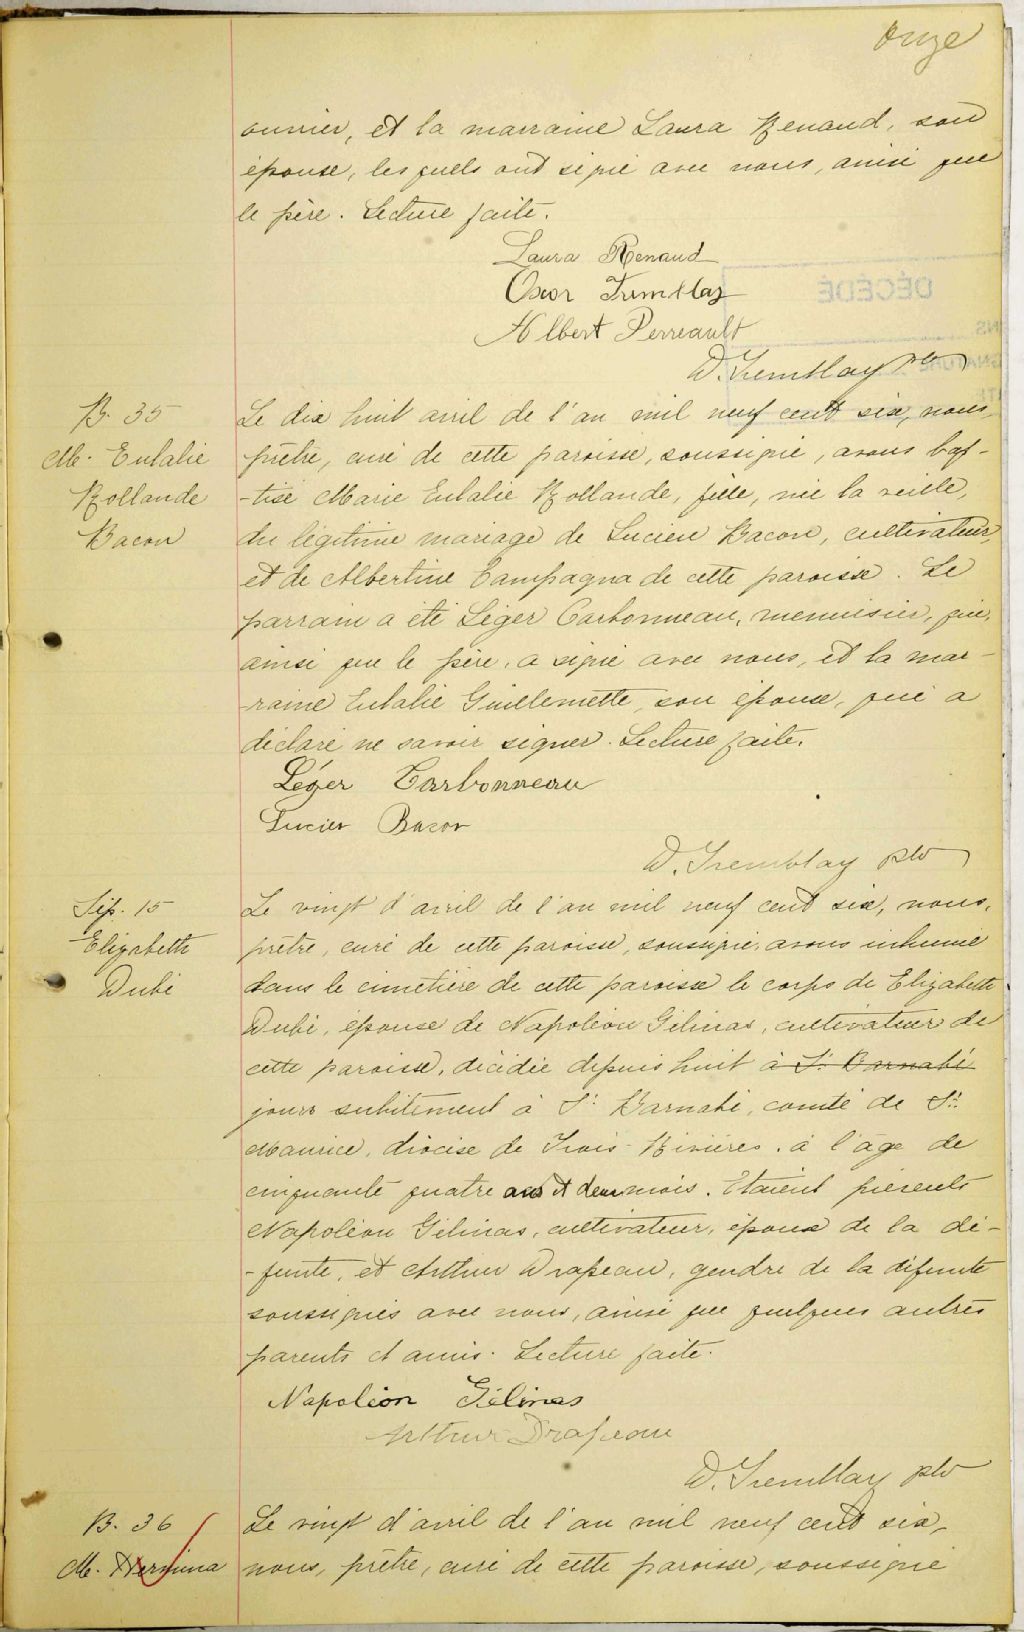 onze
ouvrier, et la marraine Laura Renaud, son
épouse, lesquels ont signé avec nous, ainsi que
le père. Lecture faite.
Laura Renaud
Oscar Tremblay
DÉCÉDÉ
Albert Perreault
D. Tremblay ptre
B. 35
M. Eulalie
Rollande
Bacon
Le dix huit avril de l'an mil neuf cent six, nous,
prêtre, curé de cette paroisse, soussigné, avons bap-
-tisé Marie Eulalie Rollande, fille, née la veille,
du légitime mariage de Lucien Bacon, cultivateur,
et de Albertine Campagna de cette paroisse. Le
parrain a été Léger Carbonneau, menuisier, qui,
ainsi que le père, a signé avec nous, et la mar-
-raine Eulalie Guillemette, son épouse, qui a
déclaré ne savoir signer. Lecture faite.
Léger Carbonneau
Lucien Bacon
D. Tremblay ptre
Sép. 15
Elizabeth
Dubé
Le vingt d'avril de l'an mil neuf cent six, nous,
prêtre, curé de cette paroisse, soussigné, avons inhumé
dans le cimetière de cette paroisse le corps de Elizabeth
Dubé, épouse de Napoléon Gélinas, cultivateur de
cette paroisse, décédée depuis huit à St. Barnabé
jours subitement à St. Barnabé, comté de St.
Maurice, diocèse de Trois-Rivières, à l'âge de
cinquante quatre ans et deux mois. Etaient présents
Napoléon Gélinas, cultivateur, époux de la dé-
-funte, et Arthur Drapeau, gendre de la défunte
soussignés avec nous, ainsi que quelques autres
parents et amis. Lecture faite.
Napoléon Gélinas
Arthur Drapeau
D. Tremblay ptre
B. 36
M. Hermina
Le vingt d'avril de l'an mil neuf cent six,
nous, prêtre, curé de cette paroisse, soussigné